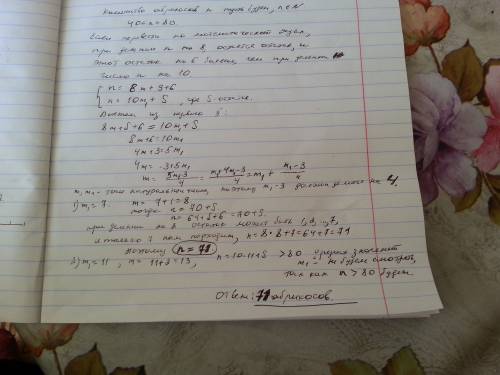 Количество абрикосов n пусть будет, n∈N
40<n<80
Если перевести на математический язык,
при делении n на 8, остаётся остаток, и
этот остаток на 6 больше, чем при делении
числа n на 10
n = 8m+S+6
n = 10m₁+S, где S-остаток.
8m+S+6=10m₁+S
8m+6=10m₁
4m+3=5m₁
4m=-3+5m₁
m=(5m₁-3)/4=(m₁+4m₁-3)/4=m₁+(m₁-3)/4
m, m₁ - натуральные числа, поэтому m₁-3 должно делиться на 4.
1) m₁=7. m=7+1=8
тогда n=70+S
n=64+S+6=70+S.
при делении на 8 остаток может быть 1,2,...,7,
и только 7 нам подходит, n=8·8+7=64+7=71
поэтому n=71
2) m₁=11, m=11+2=13, n=10·11+S >80
m₁ не будем смотреть,
так как n>80 будет
Ответ: 71 абрикосов.